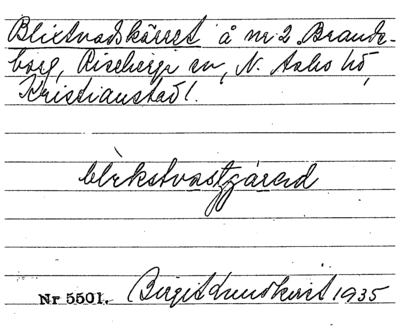 Blixtvadskärret å nr 2 Brande-
borg, Riseberga sn, N. Åsbo hd,
Kristianstad l.
Nr 5501. Birgit Lundkvist 1935